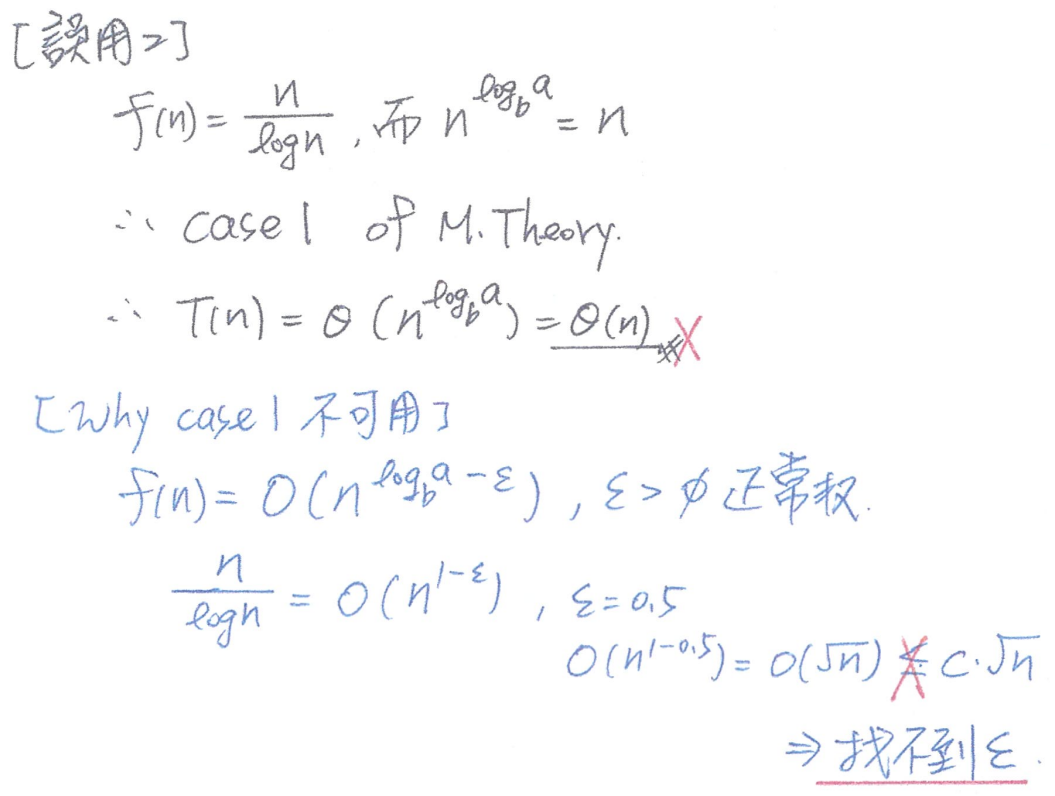 [誤用2]
f(n) = n/log n , 而 n^(log_b a) = n
∴ case 1 of M. Theory.
∴ T(n) = Θ(n^(log_b a)) = Θ(n) # X
[Why case 1 不可用]
f(n) = O(n^(log_b a - ε)) , ε > ϕ 正常数.
n/log n = O(n^(1-ε)) , ε = 0.5
O(n^(1-0.5)) = O(√n) ≤ c·√n
⇒ 找不到 ε.